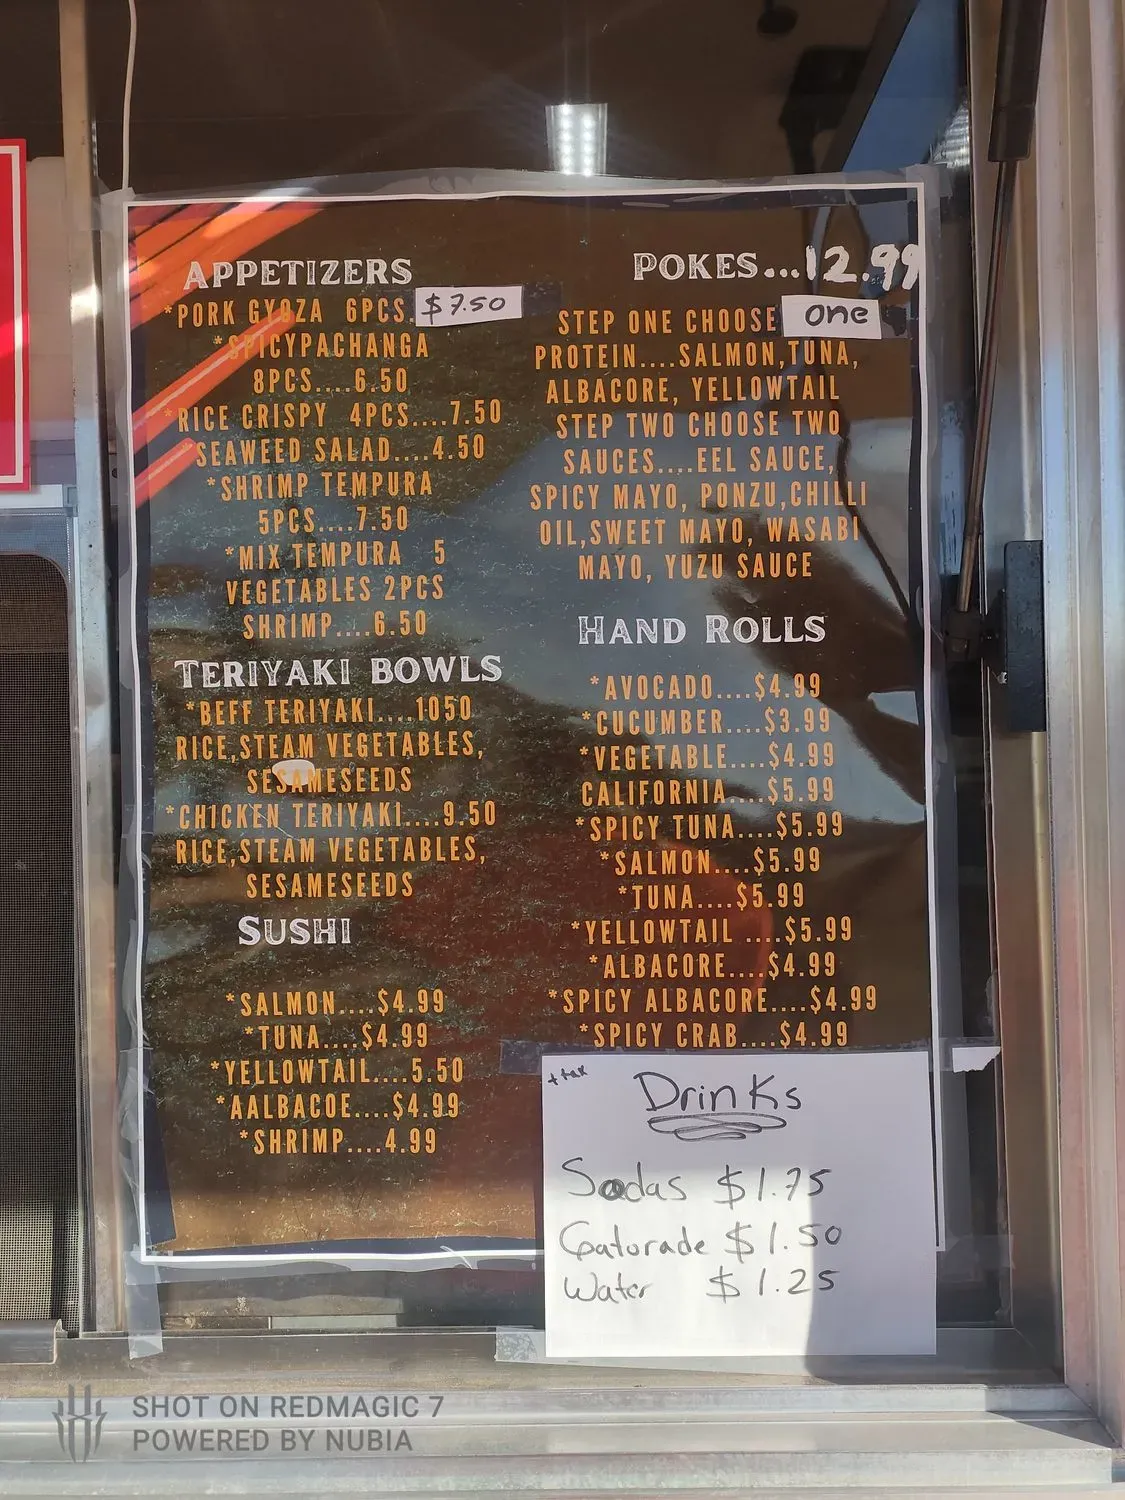 APPETIZERS
*PORK GYOZA 6PCS $7.50
*SPICYPACHANGA
8PCS....6.50
*RICE CRISPY 4PCS....7.50
*SEAWEED SALAD....4.50
*SHRIMP TEMPURA
5PCS....7.50
*MIX TEMPURA 5
VEGETABLES 2PCS
SHRIMP....6.50
TERIYAKI BOWLS
*BEFF TERIYAKI....1050
RICE,STEAM VEGETABLES,
SESAMESEEDS
*CHICKEN TERIYAKI....9.50
RICE,STEAM VEGETABLES,
SESAMESEEDS
SUSHI
*SALMON....$4.99
*TUNA....$4.99
*YELLOWTAIL....5.50
*AALBACOE....$4.99
*SHRIMP....4.99
POKES...12.99
STEP ONE CHOOSE one
PROTEIN....SALMON,TUNA,
ALBACORE, YELLOWTAIL
STEP TWO CHOOSE TWO
SAUCES....EEL SAUCE,
SPICY MAYO, PONZU,CHILLI
OIL,SWEET MAYO, WASABI
MAYO, YUZU SAUCE
HAND ROLLS
*AVOCADO....$4.99
*CUCUMBER....$3.99
*VEGETABLE....$4.99
CALIFORNIA....$5.99
*SPICY TUNA....$5.99
*SALMON....$5.99
*TUNA....$5.99
*YELLOWTAIL ....$5.99
*ALBACORE....$4.99
*SPICY ALBACORE....$4.99
*SPICY CRAB....$4.99
+ tax
Drinks
Sodas $1.75
Gatorade $1.50
Water $1.25
SHOT ON REDMAGIC 7
POWERED BY NUBIA